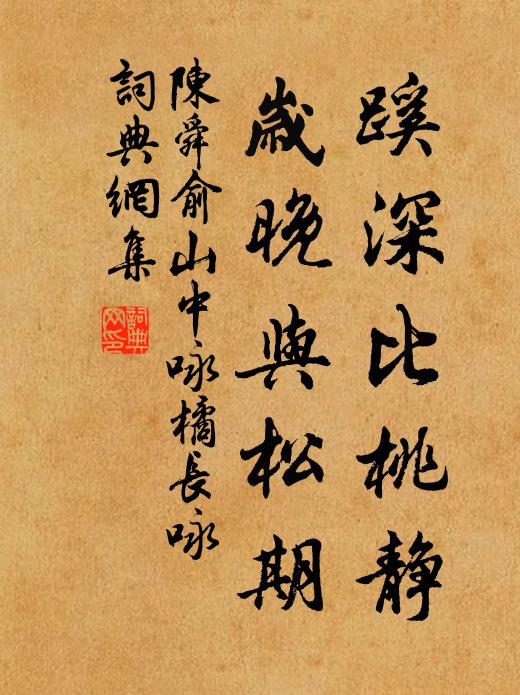 蹊深比桃静
歲晚與松期
陳舜俞山中咏橘長咏
詞典網集
詞典网印